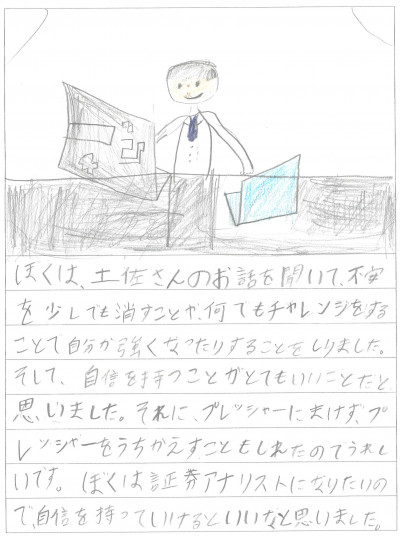 ぼくは、土佐さんのお話を聞いて、不安
を少しでも消すことや、何でもチャレンジをする
ことで自分が強くなったりすることをしりました。
そして、自信を持つことがとてもいいことだと
思いました。それに、プレッシャーにまけず、プ
レッシャーをうちかえすこともしれたのでうれし
いです。ぼくは証券アナリストになりたいの
で、自信を持っていけるといいなと思いました。